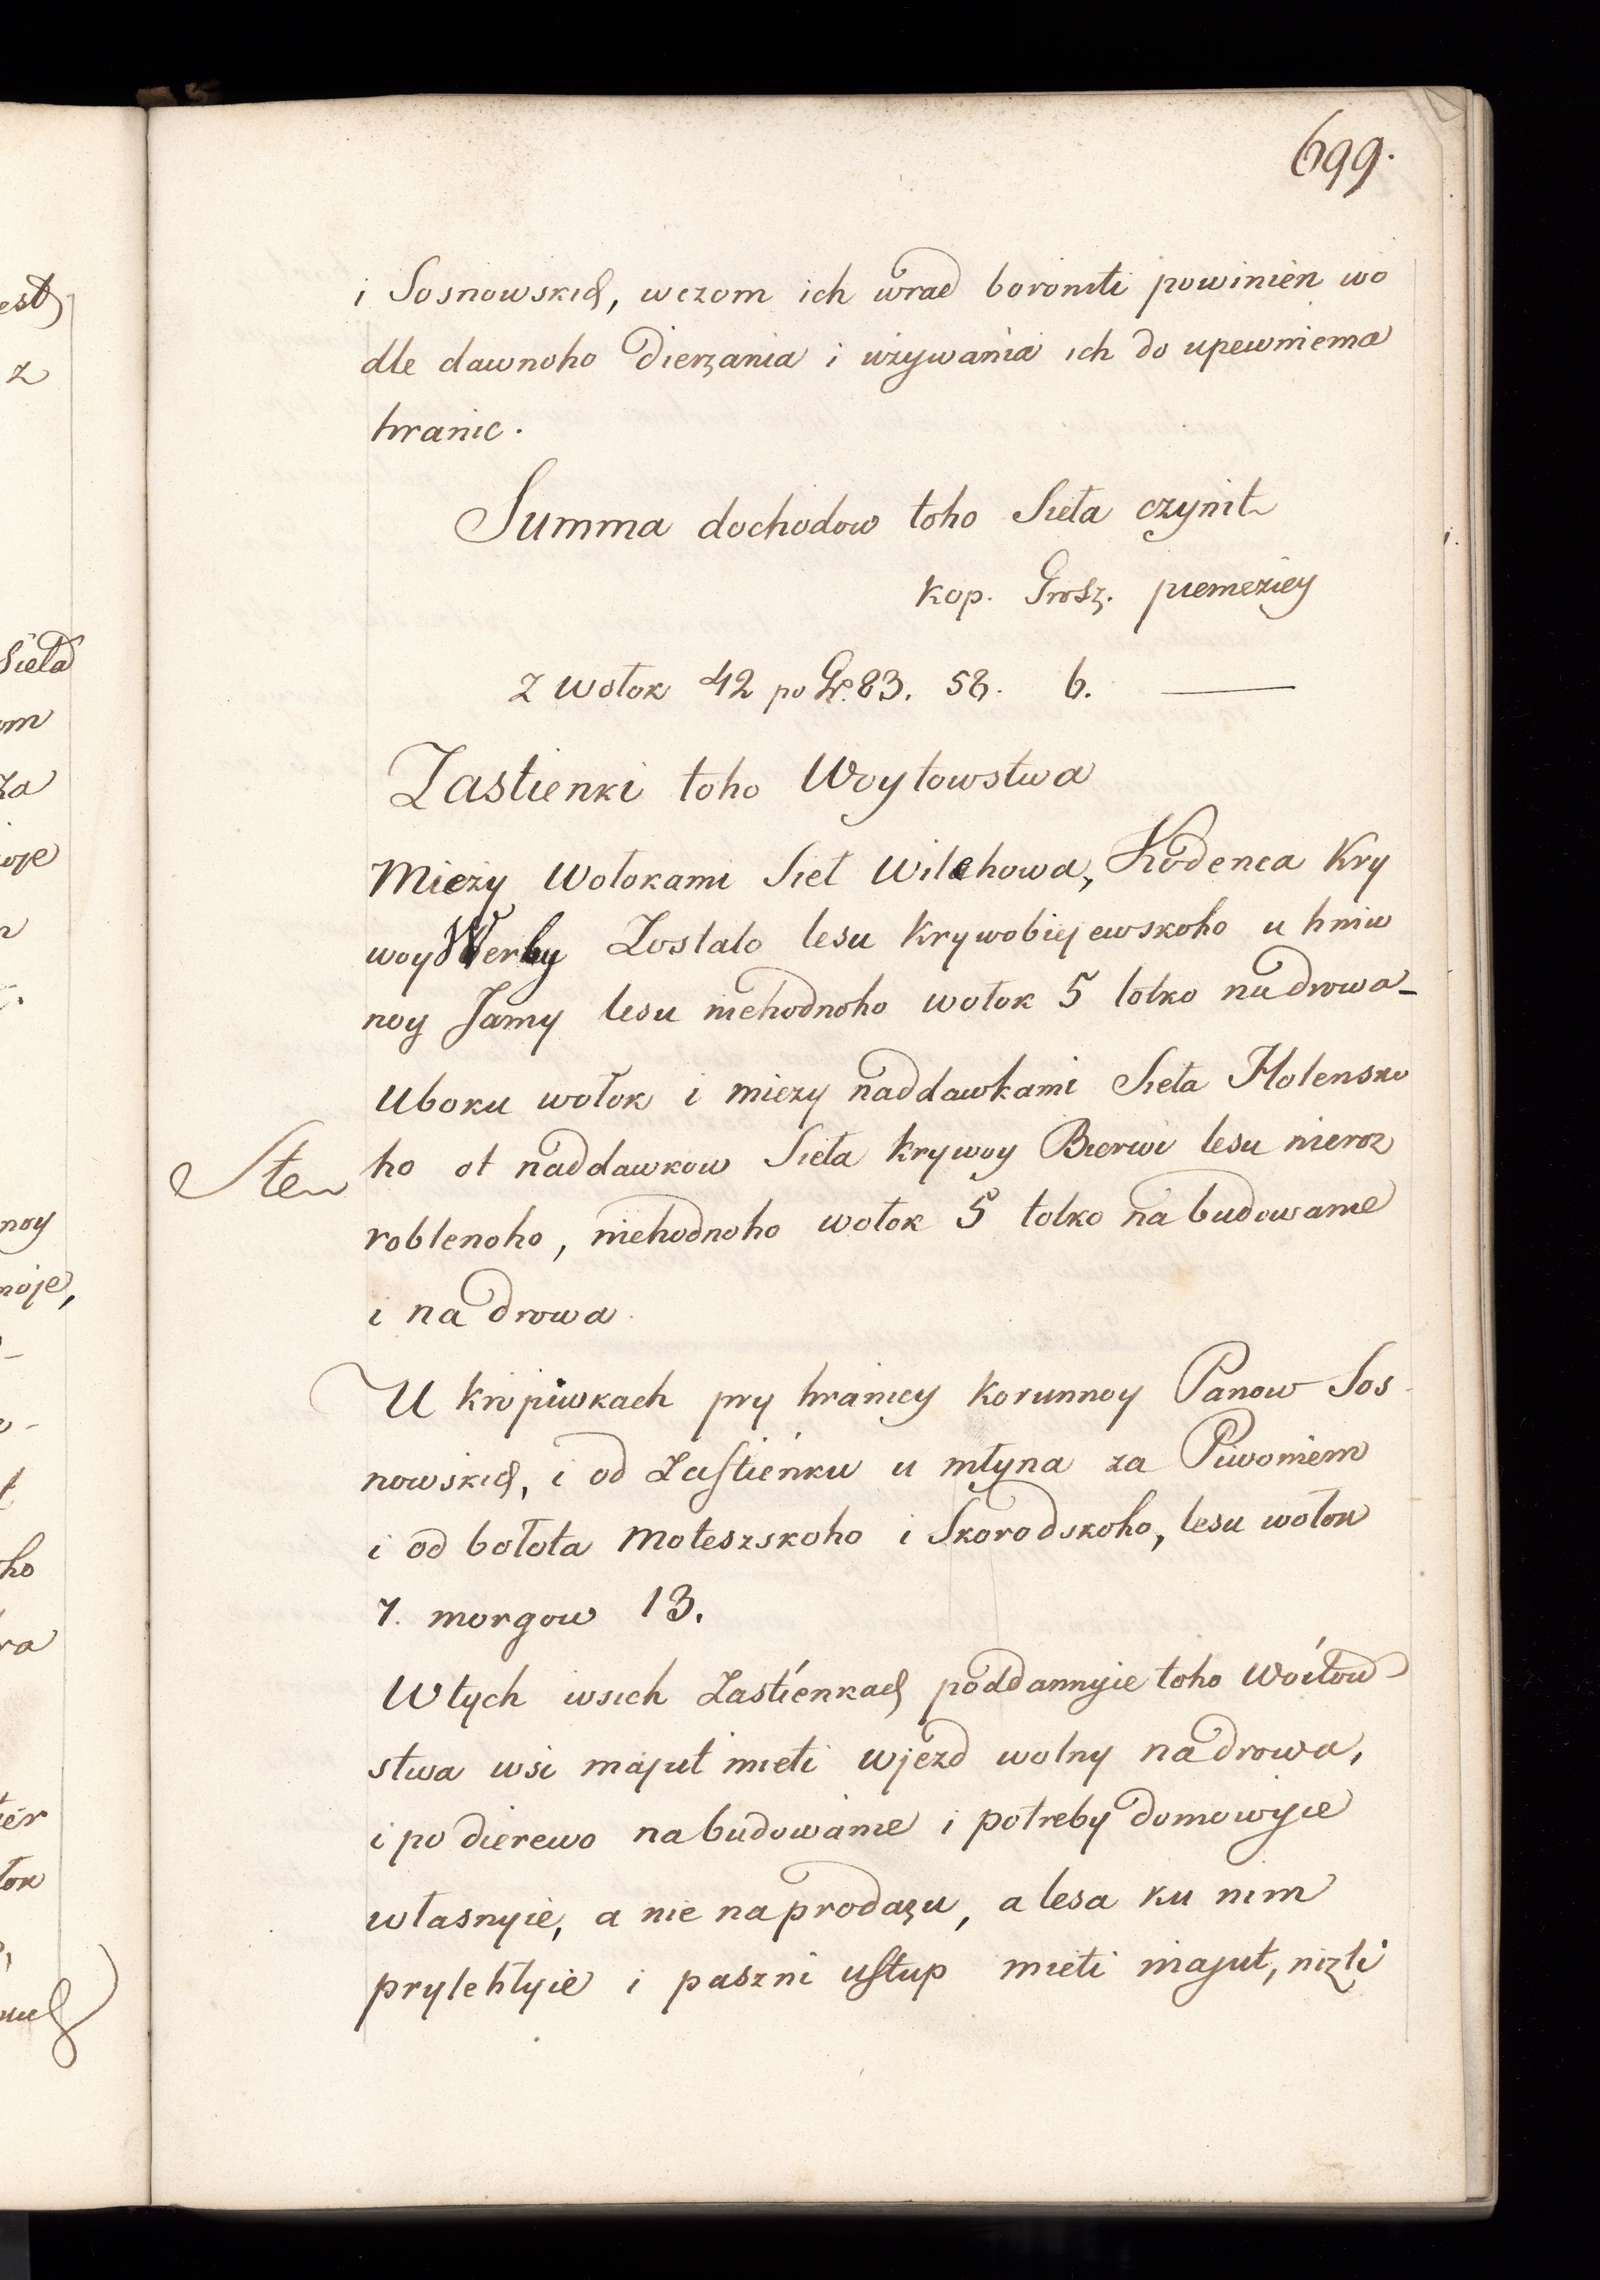 699.
i Sosnowskich, wczom ich wrad boroniti powinien wo
dle dawnoho dierżania i używania ich do upewnienia
hranic.
Summa dochodow toho Sieła czynit
kop. Grosz. pieneziey
z wołok 42 po Gr. 83. 58. 6. —
Zastienki toho Woytowstwa
Mieży Wołokami Sieł Wilchowa, Kodenca Kry
woy Werby Zostało lesu Krywobiejewskoho u hniw
noy Jamy lesu niehodnoho wołok 5 tolko na drowa_
Uboku wołok i mieży naddawkami Sieła Holensko
ho ot naddawkow Sieła krywoy Bierwi lesu nieroz
Ste
roblenoho, niehodnoho wołok 5 tolko na budowanie
i na drowa.
U kropiwkach pry hranicy Korunnoy Panow Sos
nowskich, i od Zastienku u młyna za Piwoniem
i od bołota Moteszskoho i Skorodskoho, lesu wołok
7. morgow 13.
W tych wsich Zastienkach poddannyie toho Woitow
stwa wsi majut mieti wjezd wolny na drowa,
i po dierewo na budowanie i potreby domowyie
własnyie, a nie na prodażu, a lesa ku nim
prylehłyie i paszni ustup mieti majut, niżli
est
z
Sieła
om
za
oje
noy
noje,
ho
ra
ier
łok